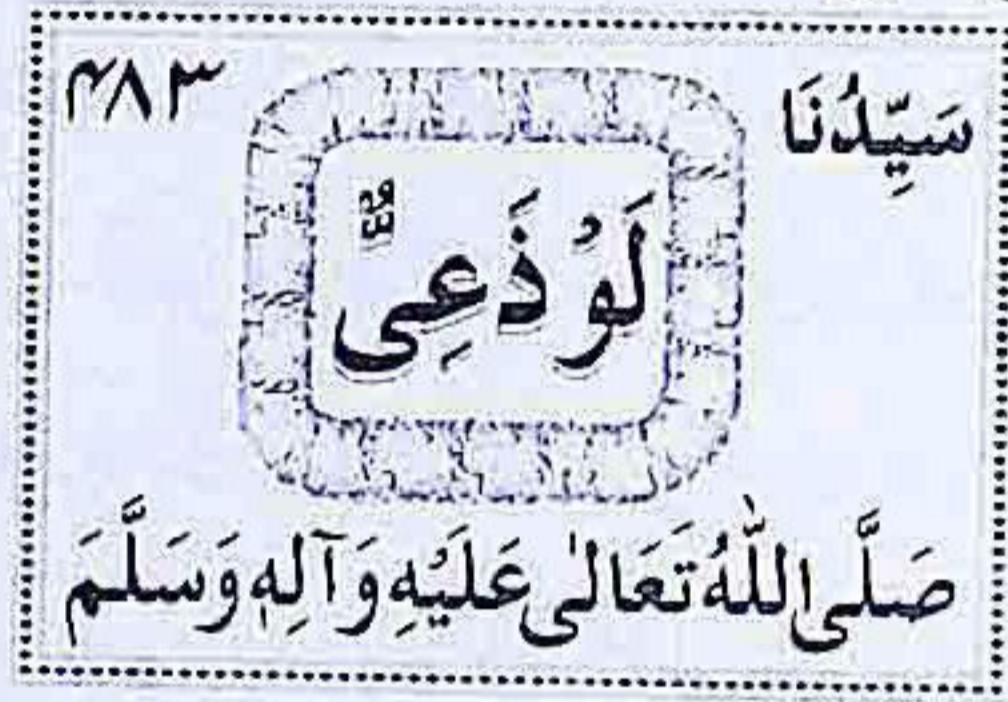 سَيِّدُنَا ۴۸۳
لَوْذَعِیٌّ
صَلَّى اللّٰهُ تَعَالٰى عَلَيْهِ وَآلِهٖ وَسَلَّمَ